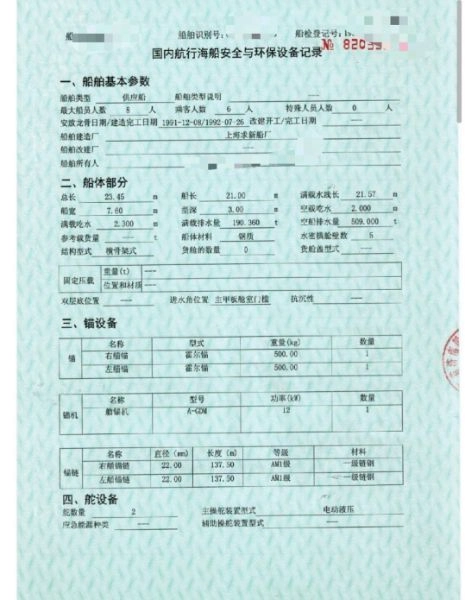 船舶识别号:
船检登记号:
№ 82099
国内航行海船安全与环保设备记录
一、船舶基本参数
船舶类型 供应船 船舶类型说明 ----
最大船员人数 8 人 乘客人数 6 人 特殊人员人数 0 人
安放龙骨日期/建造完工日期 1991-12-08/1992-07-26 改建开工/完工日期 ----
船舶建造厂 上海求新船厂
船舶改建厂 ----
船舶所有人
二、船体部分
总长 23.45 m 船长 21.00 m 满载水线长 21.57 m
船宽 7.60 m 型深 3.00 m 空载吃水 2.000 m
满载吃水 2.300 m 满载排水量 190.360 t 空船排水量 509.000 t
参考载货量 ---- t 船体材料 钢质 水密横舱壁数 5
结构型式 横骨架式 货舱的数量 0 货舱盖型式 ----
固定压载 重量(t) ----
位置和材质 ----
双层底位置 ---- 进水角位置 主甲板舱室门槛 抗沉性 ----
三、锚设备
锚 名称 型式 重量(kg) 数量
右艏锚 霍尔锚 500.00 1
左艏锚 霍尔锚 500.00 1
锚机 名称 型号 功率(kW) 数量
艏锚机 A-GDM 12 1
锚链 名称 直径 (mm) 长度 (m) 等级 材料
右艏锚链 22.00 137.50 AM1级 一级链钢
左艏锚链 22.00 137.50 AM1级 一级链钢
四、舵设备
舵数量 2 主操舵装置型式 电动液压
应急能源种类 ---- 辅助操舵装置型式 ----